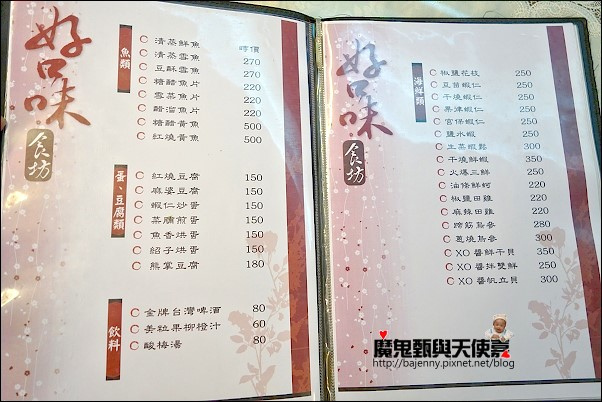 好口味
食坊
魚類
清蒸鮮魚 時價
清蒸雪魚 270
豆酥雪魚 270
糖醋魚片 220
雪菜魚片 220
醋溜魚片 220
糖醋黃魚 500
紅燒黃魚 500
蛋、豆腐類
紅燒豆腐 150
麻婆豆腐 150
蝦仁炒蛋 150
菜脯煎蛋 150
魚香烘蛋 150
紹子烘蛋 150
熊掌豆腐 180
飲料
金牌台灣啤酒 80
美粒果柳橙汁 60
酸梅湯 80
好口味
食坊
海鮮類
椒鹽花枝 250
豆苗蝦仁 250
干燒蝦仁 250
果律蝦仁 250
宮保蝦仁 250
鹽水蝦 250
生菜蝦鬆 300
干燒鮮蝦 350
火爆三鮮 250
油條鮮蚵 220
椒鹽田雞 220
麻辣田雞 220
蹄筋烏參 280
蔥燒烏參 300
XO 醬鮮干貝 350
XO 醬拌雙鮮 250
XO 醬帆立貝 300
魔鬼甄與天使嘉
http://bajenny.pixnet.net/blog